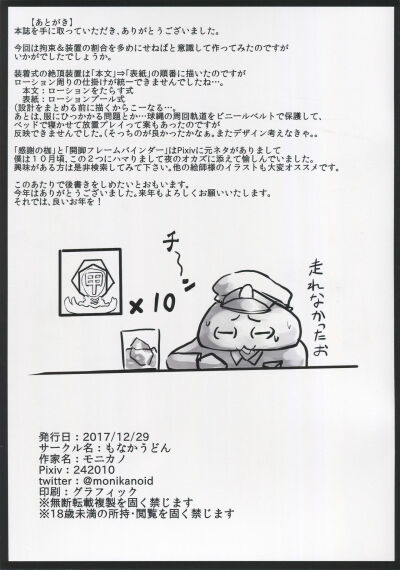 【あとがき】
本誌を手に取っていただき、ありがとうございました。
今回は拘束＆装置の割合を多めにせねばと意識して作ってみたのですが
いかがでしたでしょうか。
装着式の絶頂装置は「本文」⇒「表紙」の順番に描いたのですが
ローション周りの仕掛けが統一できませんでしたね…。
本文：ローションをたらす式
表紙：ローションプール式
(設計をまとめる前に描くからこーなる…。
あとは、服にひっかかる問題とか…球縄の周回軌道をビニールベルトで保護して、
ベッドで寝かせて放置プレイって案もあったのですが
反映できませんでした。(そっちのが良かったかなぁ。またデザイン考えなきゃ。。
「感謝の枷」と「開脚フレームバインダー」はPixivに元ネタがありまして
僕は１０月頃、この２つにハマりまして夜のオカズに添えて愉しんでいました。
興味がある方は是非検索してみて下さい。他の絵師様のイラストも大変オススメです。
このあたりで後書きをしめたいとおもいます。
今年はありがとうございました。来年もよろしくお願いいたします。
それでは、良いお年を！
チーン
走れなかったお
甲
×10
発行日：2017/12/29
サークル名：もなかうどん
作家名：モニカノ
Pixiv：242010
twitter：@monikanoid
印刷：グラフィック
※無断転載複製を固く禁じます
※18歳未満の所持・閲覧を固く禁じます